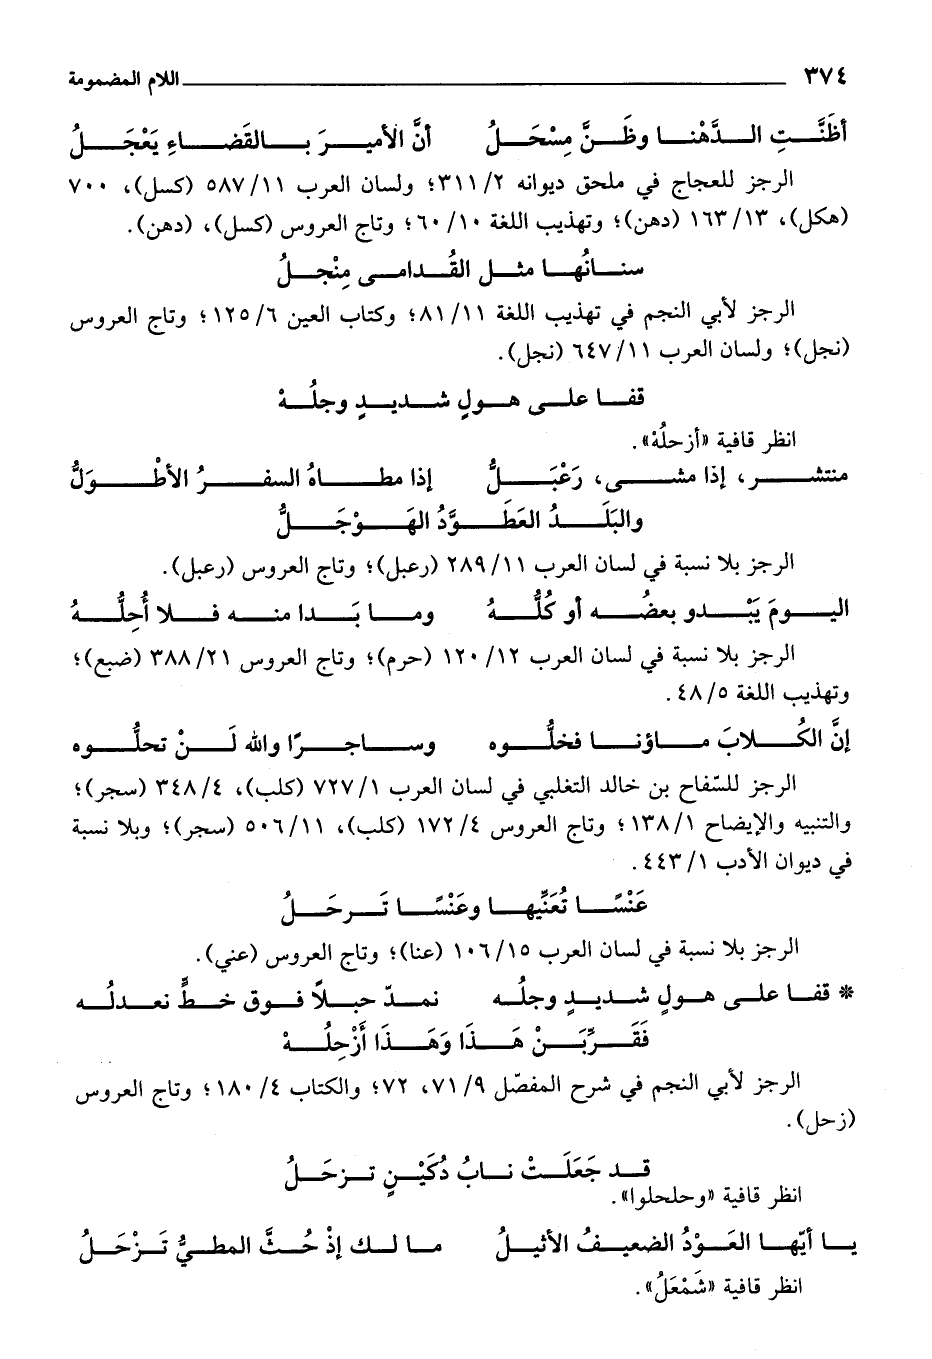 ٣٧٤ اللام المضمومة
أظَنَّتِ الدَّهْنا وظَنَّ مِسْحَلُ أنَّ الأميرَ بالقَضاءِ يَعْجَلُ
الرجز للعجاج في ملحق ديوانه ٢/ ٣١١؛ ولسان العرب ١١/ ٥٨٧ (كسل)، ٧٠٠
(هكل)، ١٣/ ١٦٣ (دهن)؛ وتهذيب اللغة ١٠/ ٦٠؛ وتاج العروس (كسل)، (دهن).
سنانُها مثل القُدامى مِنْجلُ
الرجز لأبي النجم في تهذيب اللغة ١١/ ٨١؛ وكتاب العين ٦/ ١٢٥؛ وتاج العروس
(نجل)؛ ولسان العرب ١١/ ٦٤٧ (نجل).
قفا على هولٍ شديدٍ وجلُهْ
انظر قافية «أزحلُهْ».
منتشر، إذا مشى، رَعْبَلُّ إذا مطاهُ السفرُ الأطْوَلُّ
والبَلَدُ العَطَوَّدُ الهَوْجَلُّ
الرجز بلا نسبة في لسان العرب ١١/ ٢٨٩ (رعبل)؛ وتاج العروس (رعبل).
اليومَ يَبْدو بعضُه أو كُلُّهُ وما بَدا منه فلا أُحِلُّهُ
الرجز بلا نسبة في لسان العرب ١٢/ ١٢٠ (حرم)؛ وتاج العروس ٢١/ ٣٨٨ (ضبع)؛
وتهذيب اللغة ٥/ ٤٨.
إنَّ الكُلابَ ماؤنا فخلُّوه وساجرًا والله لَنْ تحلُّوه
الرجز للسّفاح بن خالد التغلبي في لسان العرب ١/ ٧٢٧ (كلب)، ٤/ ٣٤٨ (سجر)؛
والتنبيه والإيضاح ١/ ١٣٨؛ وتاج العروس ٤/ ١٧٢ (كلب)، ١١/ ٥٠٦ (سجر)؛ وبلا نسبة
في ديوان الأدب ١/ ٤٤٣.
عَنْسًا تُعَنِّيها وعَنْسًا تَرحَلُ
الرجز بلا نسبة في لسان العرب ١٥/ ١٠٦ (عنا)؛ وتاج العروس (عني).
* قفا على هولٍ شديدٍ وجلُه نمدّ حبلاً فوق خطٍّ نعدلُه
فَقَرِّبَنْ هَذَا وَهَذَا أَزْحِلُهْ
الرجز لأبي النجم في شرح المفصّل ٩/ ٧١، ٧٢؛ والكتاب ٤/ ١٨٠؛ وتاج العروس
(زحل).
قد جَعَلَتْ نابُ دُكَيْنٍ تزحَلُ
انظر قافية «وحلحلوا».
يا أيّها العَوْدُ الضعيفُ الأثيلُ ما لك إذْ حُثَّ المطيُّ تَزْحَلُ
انظر قافية «شَمْعَلُ».